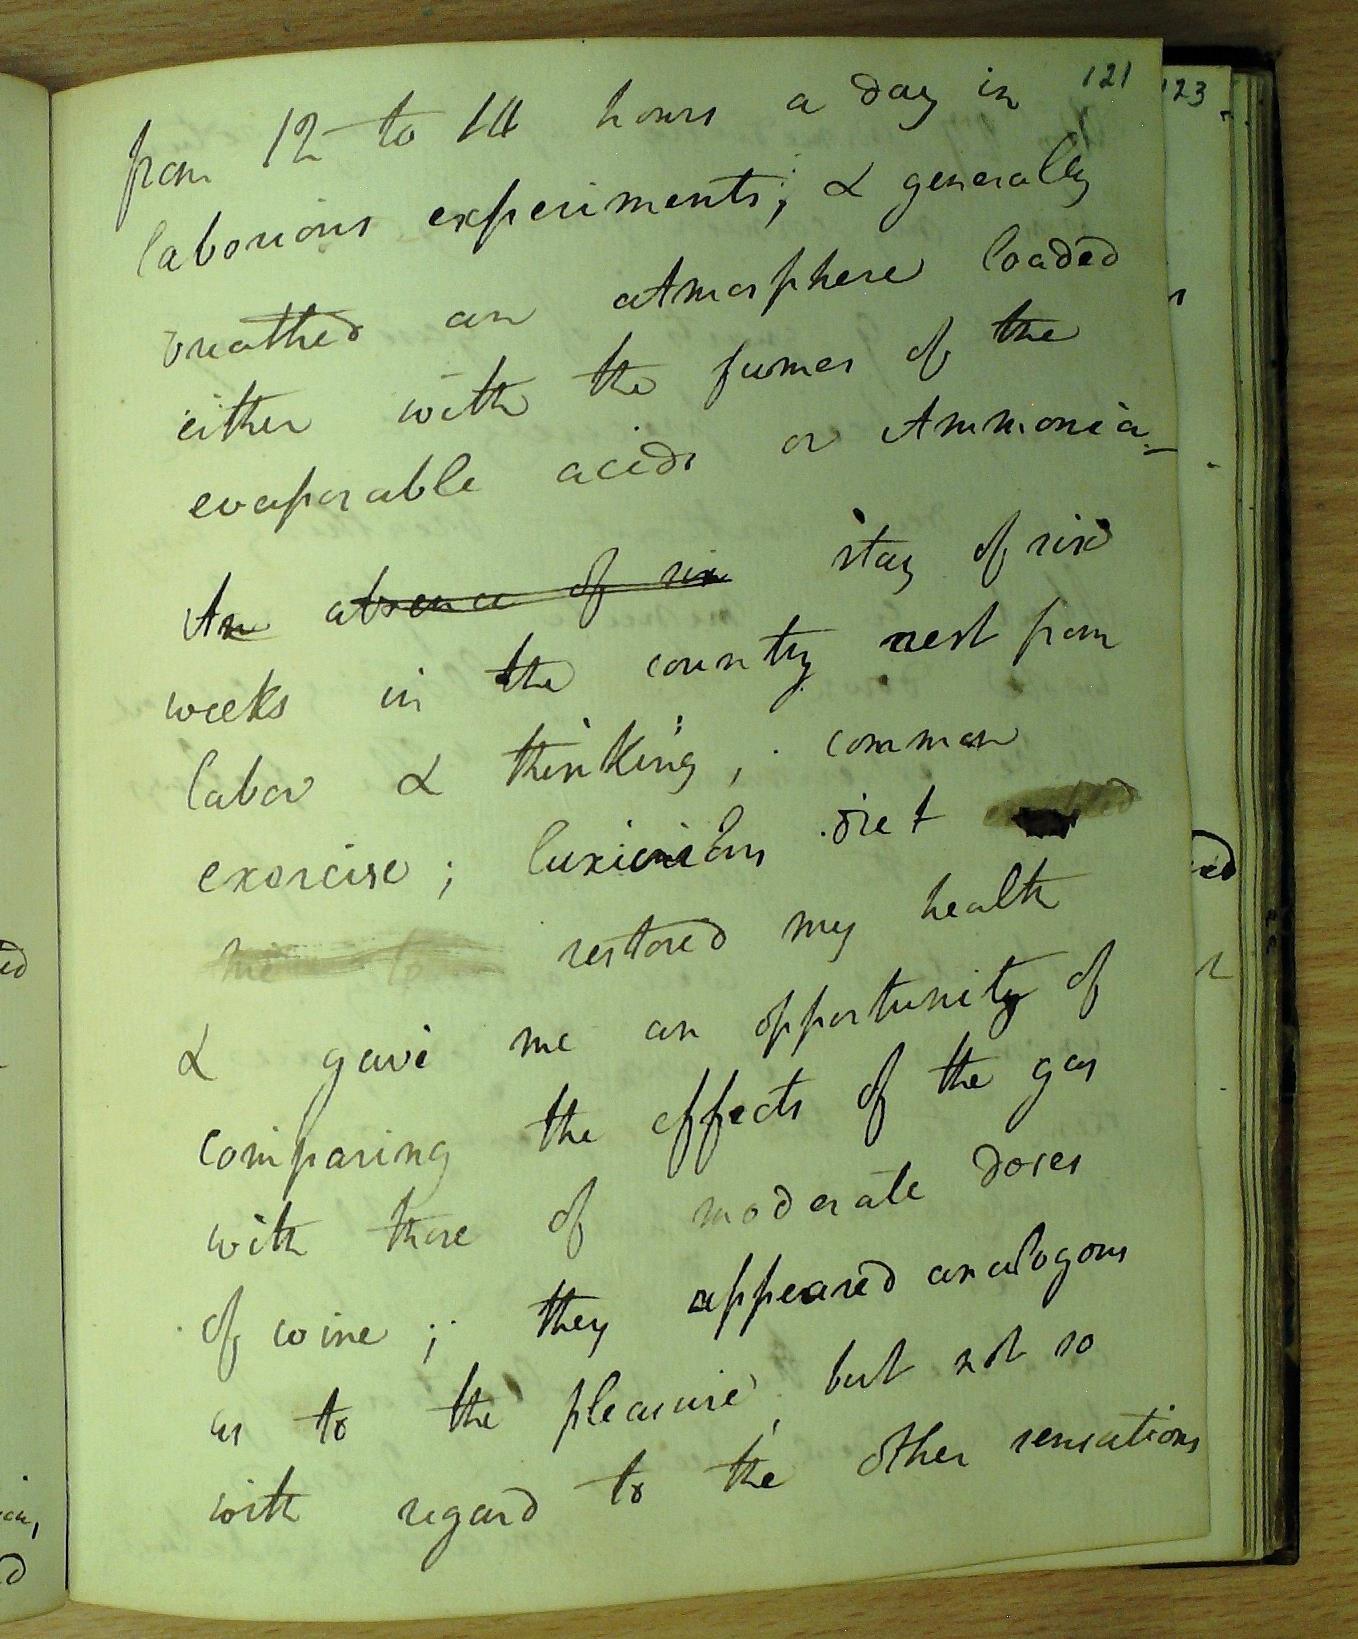 121
123
from 12 to 14 hours a day in
laborious experiments; & generally
breathed an atmosphere loaded
either with the fumes of the
evaporable acids or Ammonia-
An absence of six stay of six
weeks in the country rest from
labor & thinking, common
exorcise; luxurious diet
restored my health
& gave me an opportunity of
comparing the effects of the gas
with those of moderate doses
of wine; they appeared analogous
as to the pleasure, but not so
with regard to the other sensations